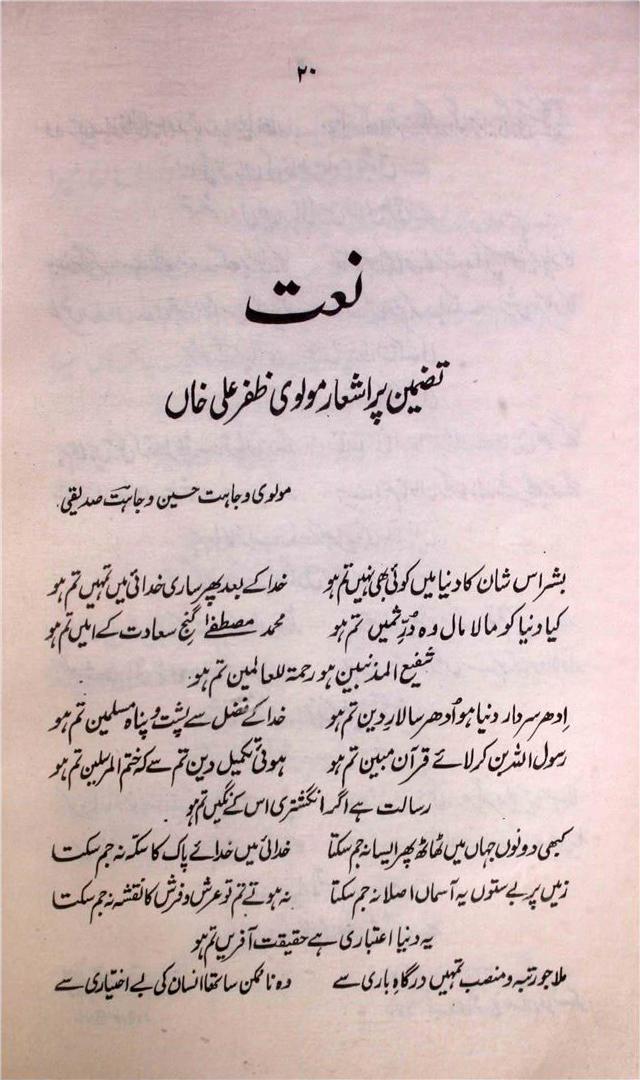 ۲۰
نعت
تضمین پر اشعار مولوی ظفر علی خاں
مولوی وجاہت حسین وجاہت صدیقی
بشر اس شان کا دنیا میں کوئی بھی نہیں تم ہو خدا کے بعد پھر ساری خدائی میں تمہیں تم ہو
کیا دنیا کو مالا مال وہ دُرِّ ثمیں تم ہو محمد مصطفےٰ گنجِ سعادت کے امیں تم ہو
شفیع المذنبیں ہو رحمۃ للعالمیں تم ہو
اِدھر سردار دنیا ہو اُدھر سالارِ دین تم ہو خدا کے فضل سے پشت و پناہ مسلمین تم ہو
رسول اللہ بن کر لائے قرآن مبین تم ہو ہوئی تکمیل دین تم سے کہ ختم المرسلین تم ہو
رسالت ہے اگر انگشتری اس کے نگیں تم ہو
کبھی دونوں جہاں میں ٹھاٹھ پھر ایسا نہ جم سکتا خدائی میں خدائے پاک کا سکہ نہ جم سکتا
زمیں پر بے ستوں یہ آسماں اصلا نہ جم سکتا نہ ہوتے تم تو عرش و فرش کا نقشہ نہ جم سکتا
یہ دنیا اعتباری ہے حقیقت آفریں تم ہو
ملا جو رتبہ و منصب تمہیں درگاہِ باری سے وہ ناممکن سا تھا انسان کی بے اختیاری سے